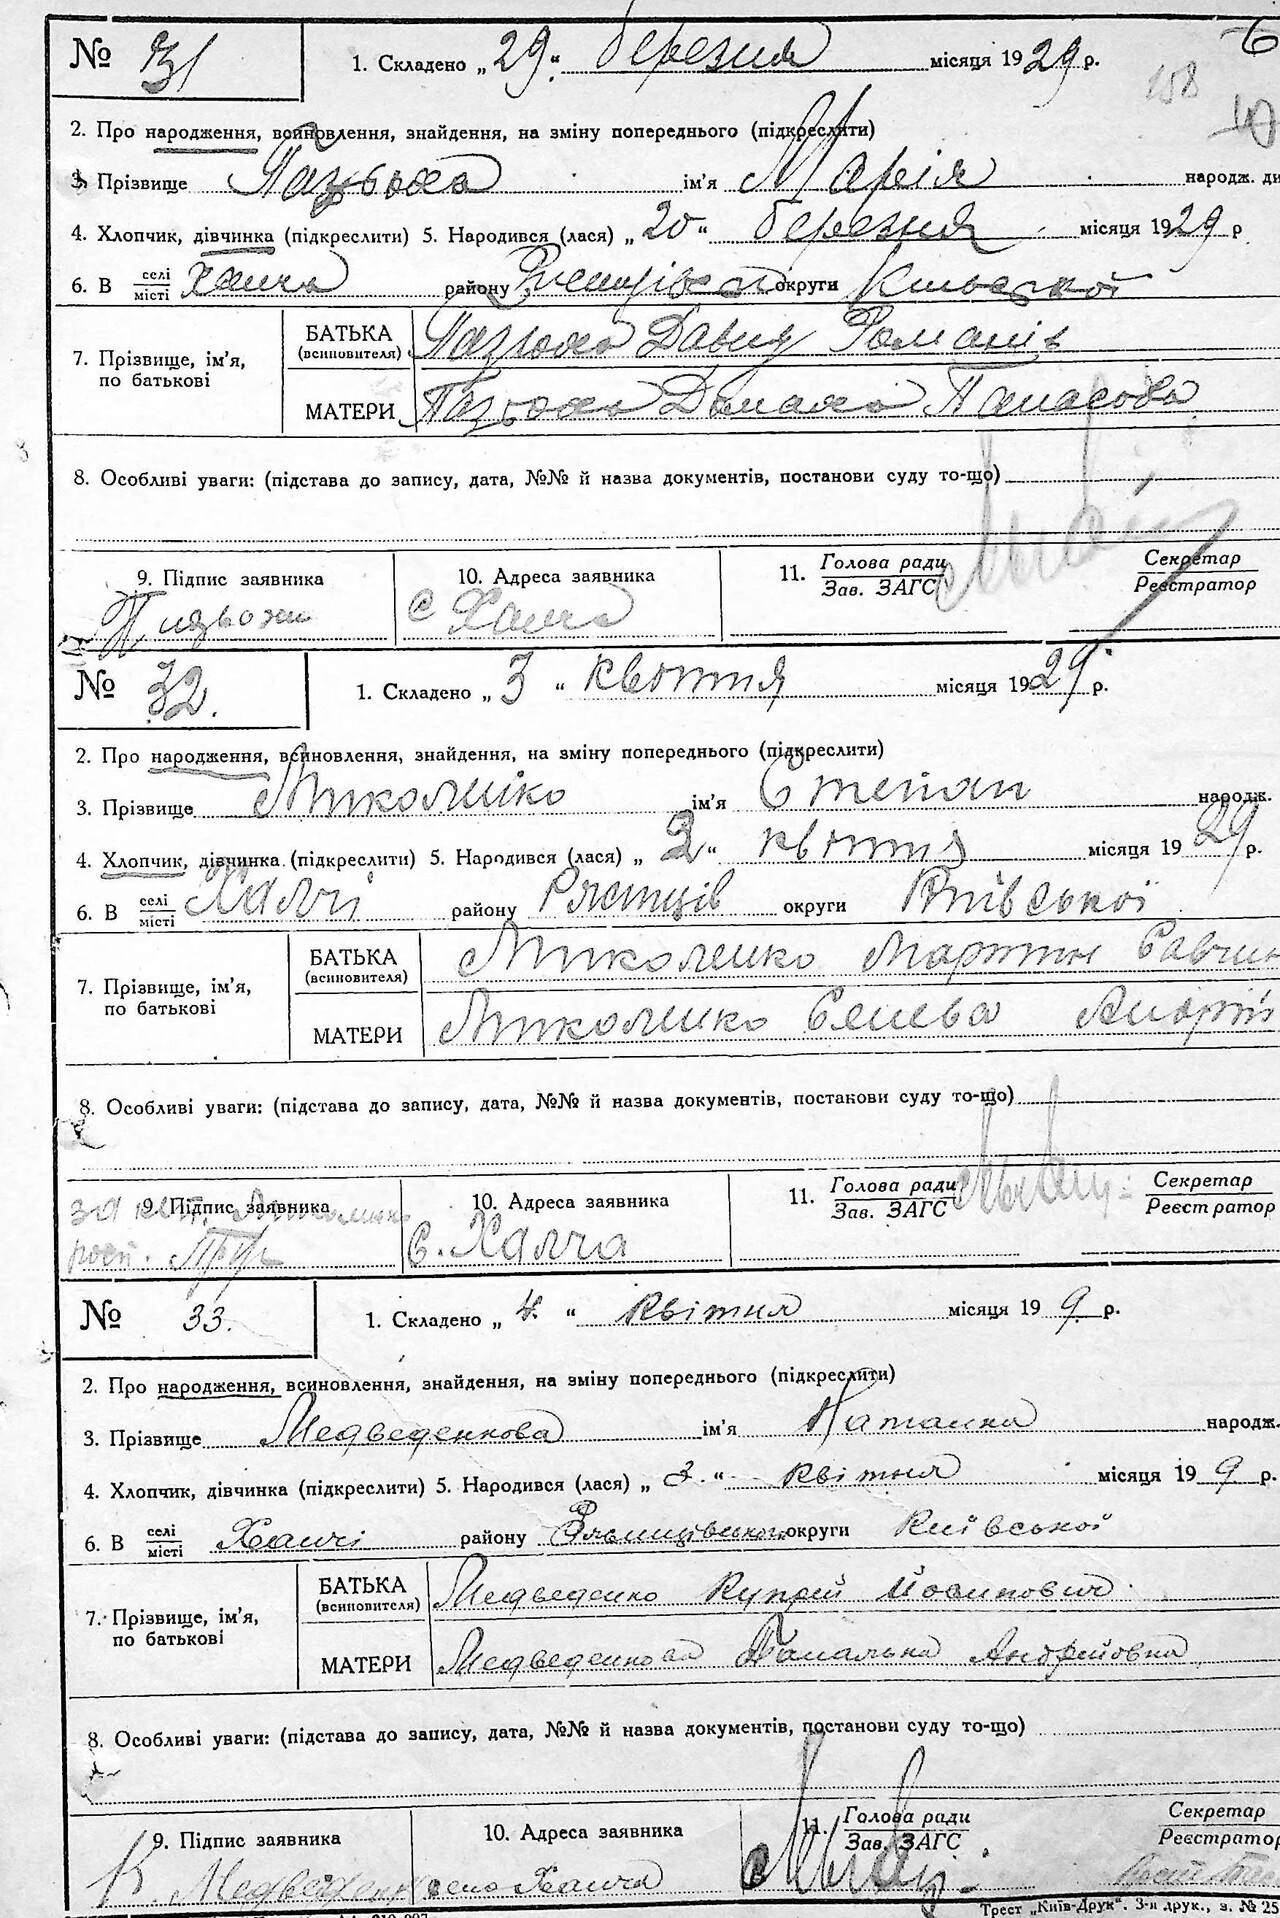 № 31 1. Складено „29“ березня місяця 1929 р. 6
158
2. Про народження, всиновлення, знайдення, на зміну попереднього (підкреслити)
3. Прізвище Пазьоха ім'я Марія народж. ди
4. Хлопчик, дівчинка (підкреслити) 5. Народився (лася) „20“ березня місяця 1929 р
6. В селі місті Халча району округи Київської
БАТЬКА (всиновителя) Пазюха Давид Романів
7. Прізвище, ім'я, по батькові
МАТЕРИ Пазьоха Домаха Панасова
8. Особливі уваги: (підстава до запису, дата, №№ й назва документів, постанови суду то-що)
9. Підпис заявника 10. Адреса заявника 11. Голова ради Зав. ЗАГС Секретар Реєстратор
с Халча
№ 32. 1. Складено „3“ квітня місяця 1929 р.
2. Про народження, всиновлення, знайдення, на зміну попереднього (підкреслити)
3. Прізвище Миколенко ім'я Степан народж.
4. Хлопчик, дівчинка (підкреслити) 5. Народився (лася) „2“ квітня місяця 1929 р.
6. В селі місті Халчі району Ржищів округи Київської
БАТЬКА (всиновителя) Миколенко Мартин Савчин
7. Прізвище, ім'я, по батькові
МАТЕРИ Миколенко Андрії
8. Особливі уваги: (підстава до запису, дата, №№ й назва документів, постакови суду то-що)
9. Підпис заявника 10. Адреса заявника 11. Голова ради Зав. ЗАГС Секретар Реєстратор
с. Халча
№ 33. 1. Складено „4.“ квітня місяця 19 9 р.
2. Про народження, всиновлення, знайдення, на зміну попереднього (підкреслити)
3. Прізвище Медведенкова ім'я Наталка народж.
4. Хлопчик, дівчинка (підкреслити) 5. Народився (лася) „3.“ квітня місяця 19 9 р.
6. В селі місті Халчі району округи Київської
БАТЬКА (всиновителя) Медведенко Купрій Йосипович
7. Прізвище, ім'я, по батькові
МАТЕРИ Медведенкова Андріївна
8. Особливі уваги: (підстава до запису, дата, №№ й назва документів, постанови суду то-що)
9. Підпис заявника 10. Адреса заявника 11. Голова ради Зав. ЗАГС Секретар Реєстратор
К. Медведенк село Халча
Трест „Київ-Друк“. 3-я друк., з. № 25